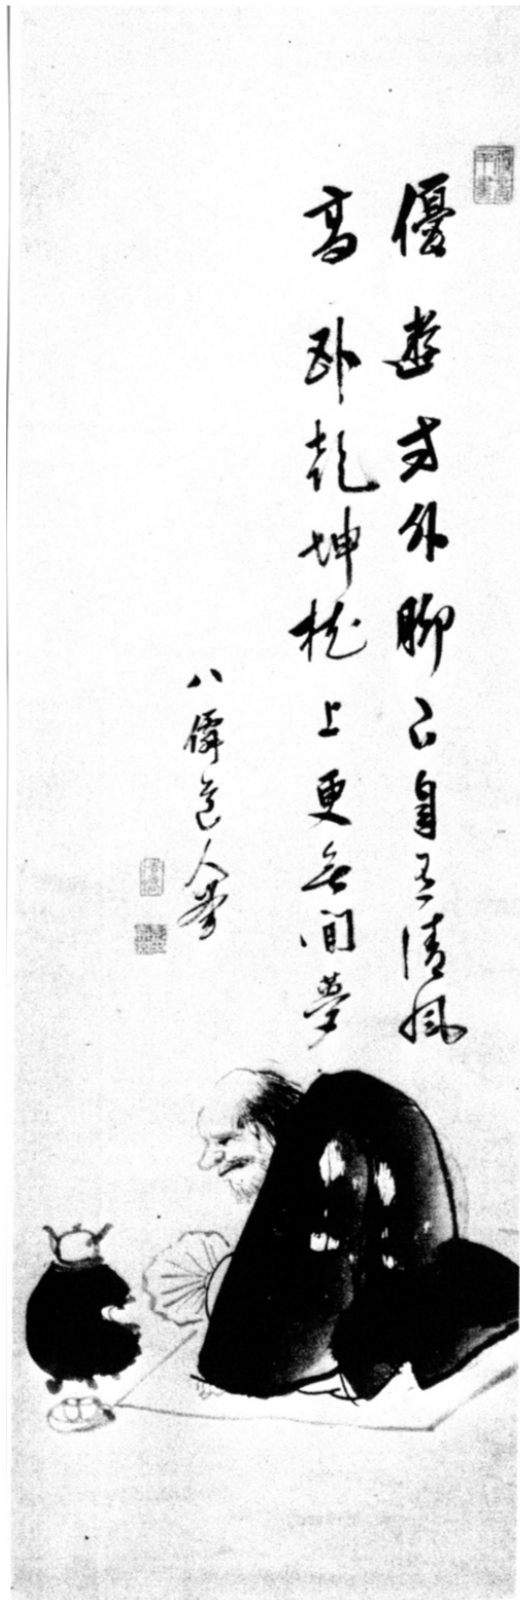 優遊方外聊以自有清風
高臥乾坤枕上更無間夢
八僊道人